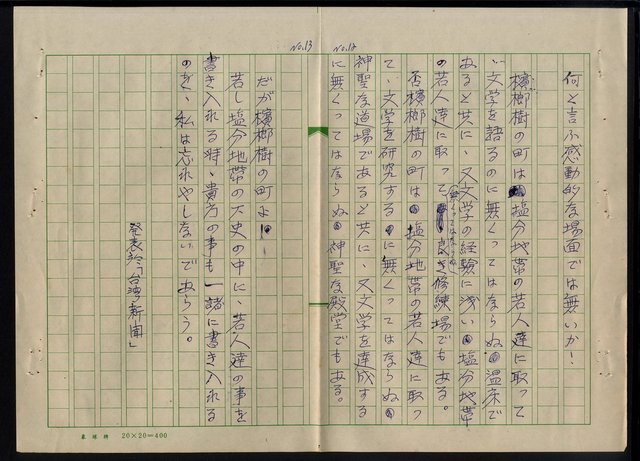 No.12
何と言ふ感動的な場面では無いか！
檳榔樹の町は塩分地帯の若人達に取って
文学を語るのに無くってはならぬ温床で
あると共に、又文学の経験に浅い塩分地帯
の若人達に取って(無くってはならぬ)良き修練場でもある。
否檳榔樹の町は塩分地帯の若人達に取っ
て、文学を研究するに無くってはならぬ
神聖な道場であると共に、又文学を達成する
に無くってはならぬ神聖な殿堂でもある。
No.13
だが檳榔樹の町よ！
若し塩分地帯の歴史の中に、若人達の事を
書き入れる時、貴方の事も一諸に書き入れる
のを、私は忘れやしないであらう。
発表於「台湾新聞」
20×20=400